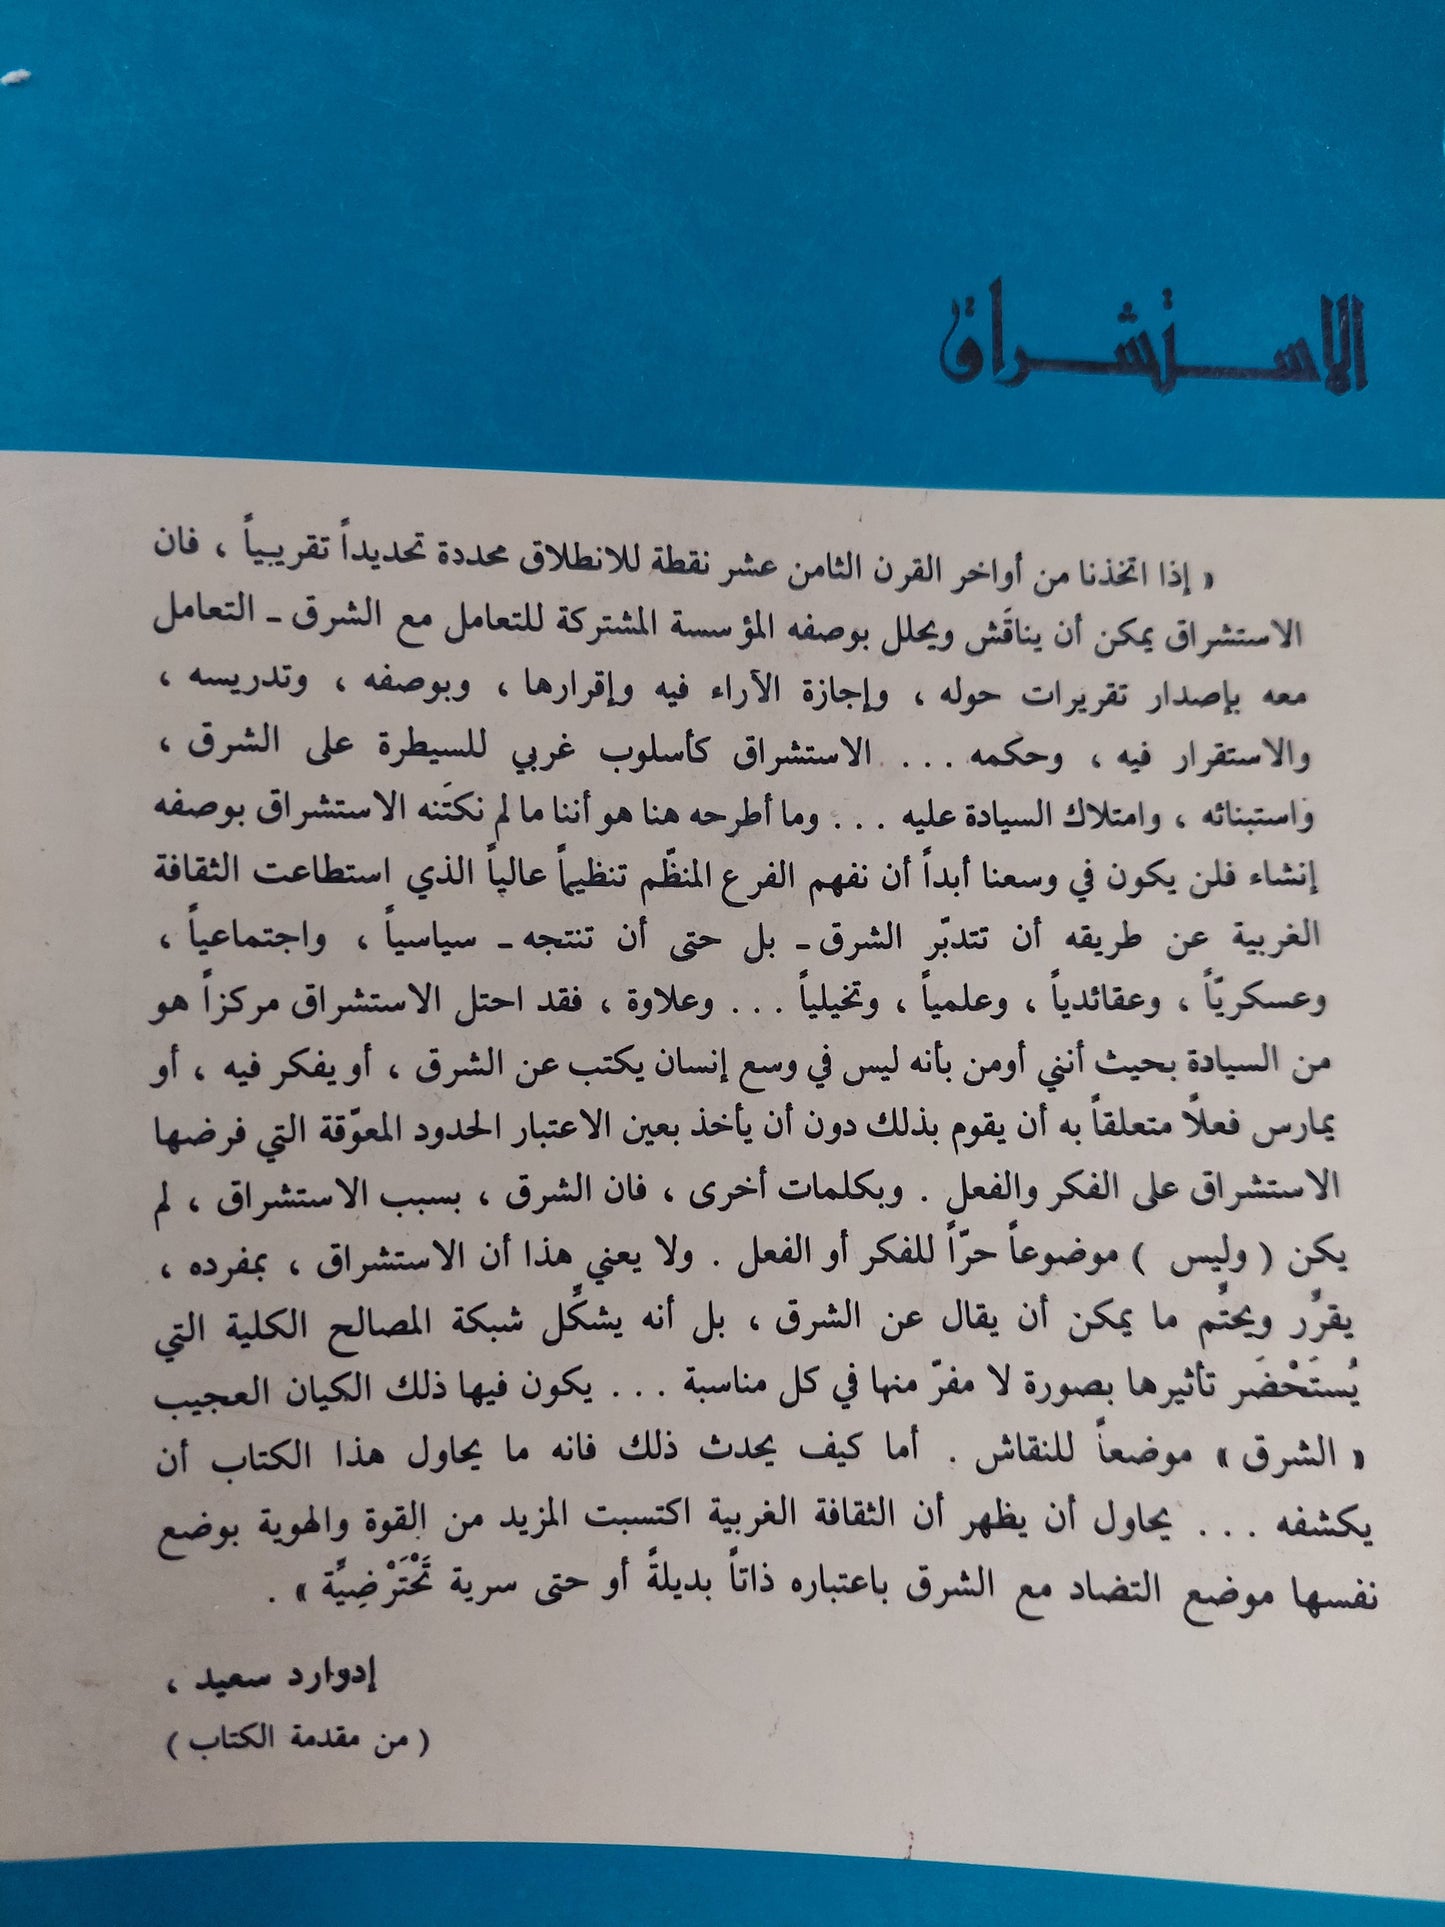 الاستشراق
« إذا اتخذنا من أواخر القرن الثامن عشر نقطة للانطلاق محددة تحديداً تقريبياً ، فان
الاستشراق يمكن أن يناقَش ويحلل بوصفه المؤسسة المشتركة للتعامل مع الشرق ـ التعامل
معه بإصدار تقريرات حوله ، وإجازة الآراء فيه وإقرارها ، وبوصفه ، وتدريسه ،
والاستقرار فيه ، وحكمه . . . الاستشراق كأسلوب غربي للسيطرة على الشرق ،
واستبنائه ، وامتلاك السيادة عليه . . . وما أطرحه هنا هو أننا ما لم نكتَنه الاستشراق بوصفه
إنشاء فلن يكون في وسعنا أبداً أن نفهم الفرع المنظّم تنظيماً عالياً الذي استطاعت الثقافة
الغربية عن طريقه أن تتدبّر الشرق ـ بل حتى أن تنتجه ـ سياسياً ، واجتماعياً ،
وعسكريّاً ، وعقائدياً ، وعلمياً ، وتخيلياً . . . وعلاوة ، فقد احتل الاستشراق مركزاً هو
من السيادة بحيث أنني أومن بأنه ليس في وسع إنسان يكتب عن الشرق ، أو يفكر فيه ، أو
يمارس فعلاً متعلقاً به أن يقوم بذلك دون أن يأخذ بعين الاعتبار الحدود المعوّقة التي فرضها
الاستشراق على الفكر والفعل . وبكلمات أخرى ، فان الشرق ، بسبب الاستشراق ، لم
يكن ( وليس ) موضوعاً حرّاً للفكر أو الفعل . ولا يعني هذا أن الاستشراق ، بمفرده ،
يقرِّر ويحتِّم ما يمكن أن يقال عن الشرق ، بل أنه يشكِّل شبكة المصالح الكلية التي
يُستَحْضَر تأثيرها بصورة لا مفرّ منها في كل مناسبة . . . يكون فيها ذلك الكيان العجيب
« الشرق » موضعاً للنقاش . أما كيف يحدث ذلك فانه ما يحاول هذا الكتاب أن
يكشفه . . . يحاول أن يظهر أن الثقافة الغربية اكتسبت المزيد من القوة والهوية بوضع
نفسها موضع التضاد مع الشرق باعتباره ذاتاً بديلةً أو حتى سرية تَحْتَرْضِيَّة » .
إدوارد سعيد ،
( من مقدمة الكتاب )